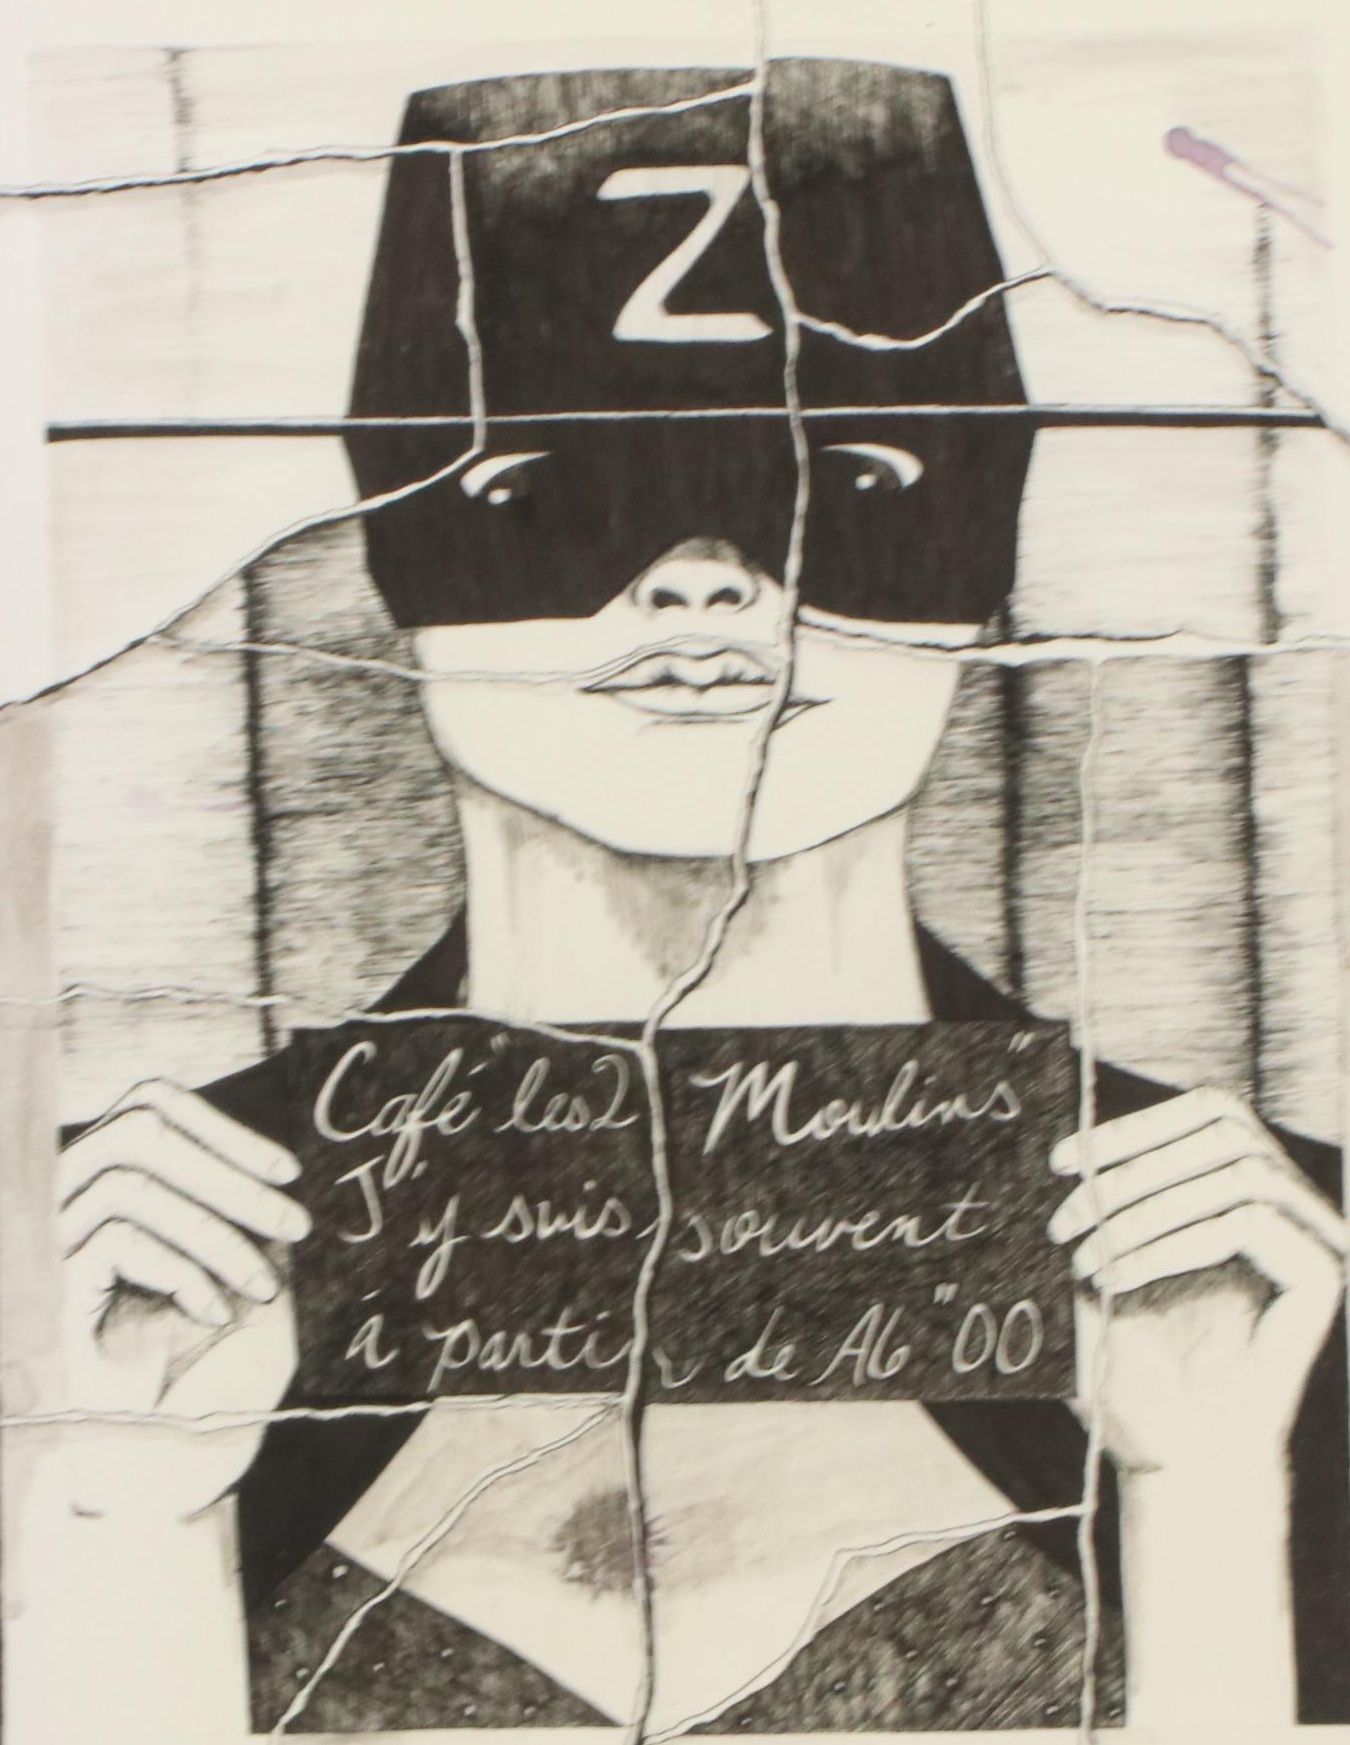 Z
Café "les 2 Moulins"
J'y suis souvent
à partir de A6"00